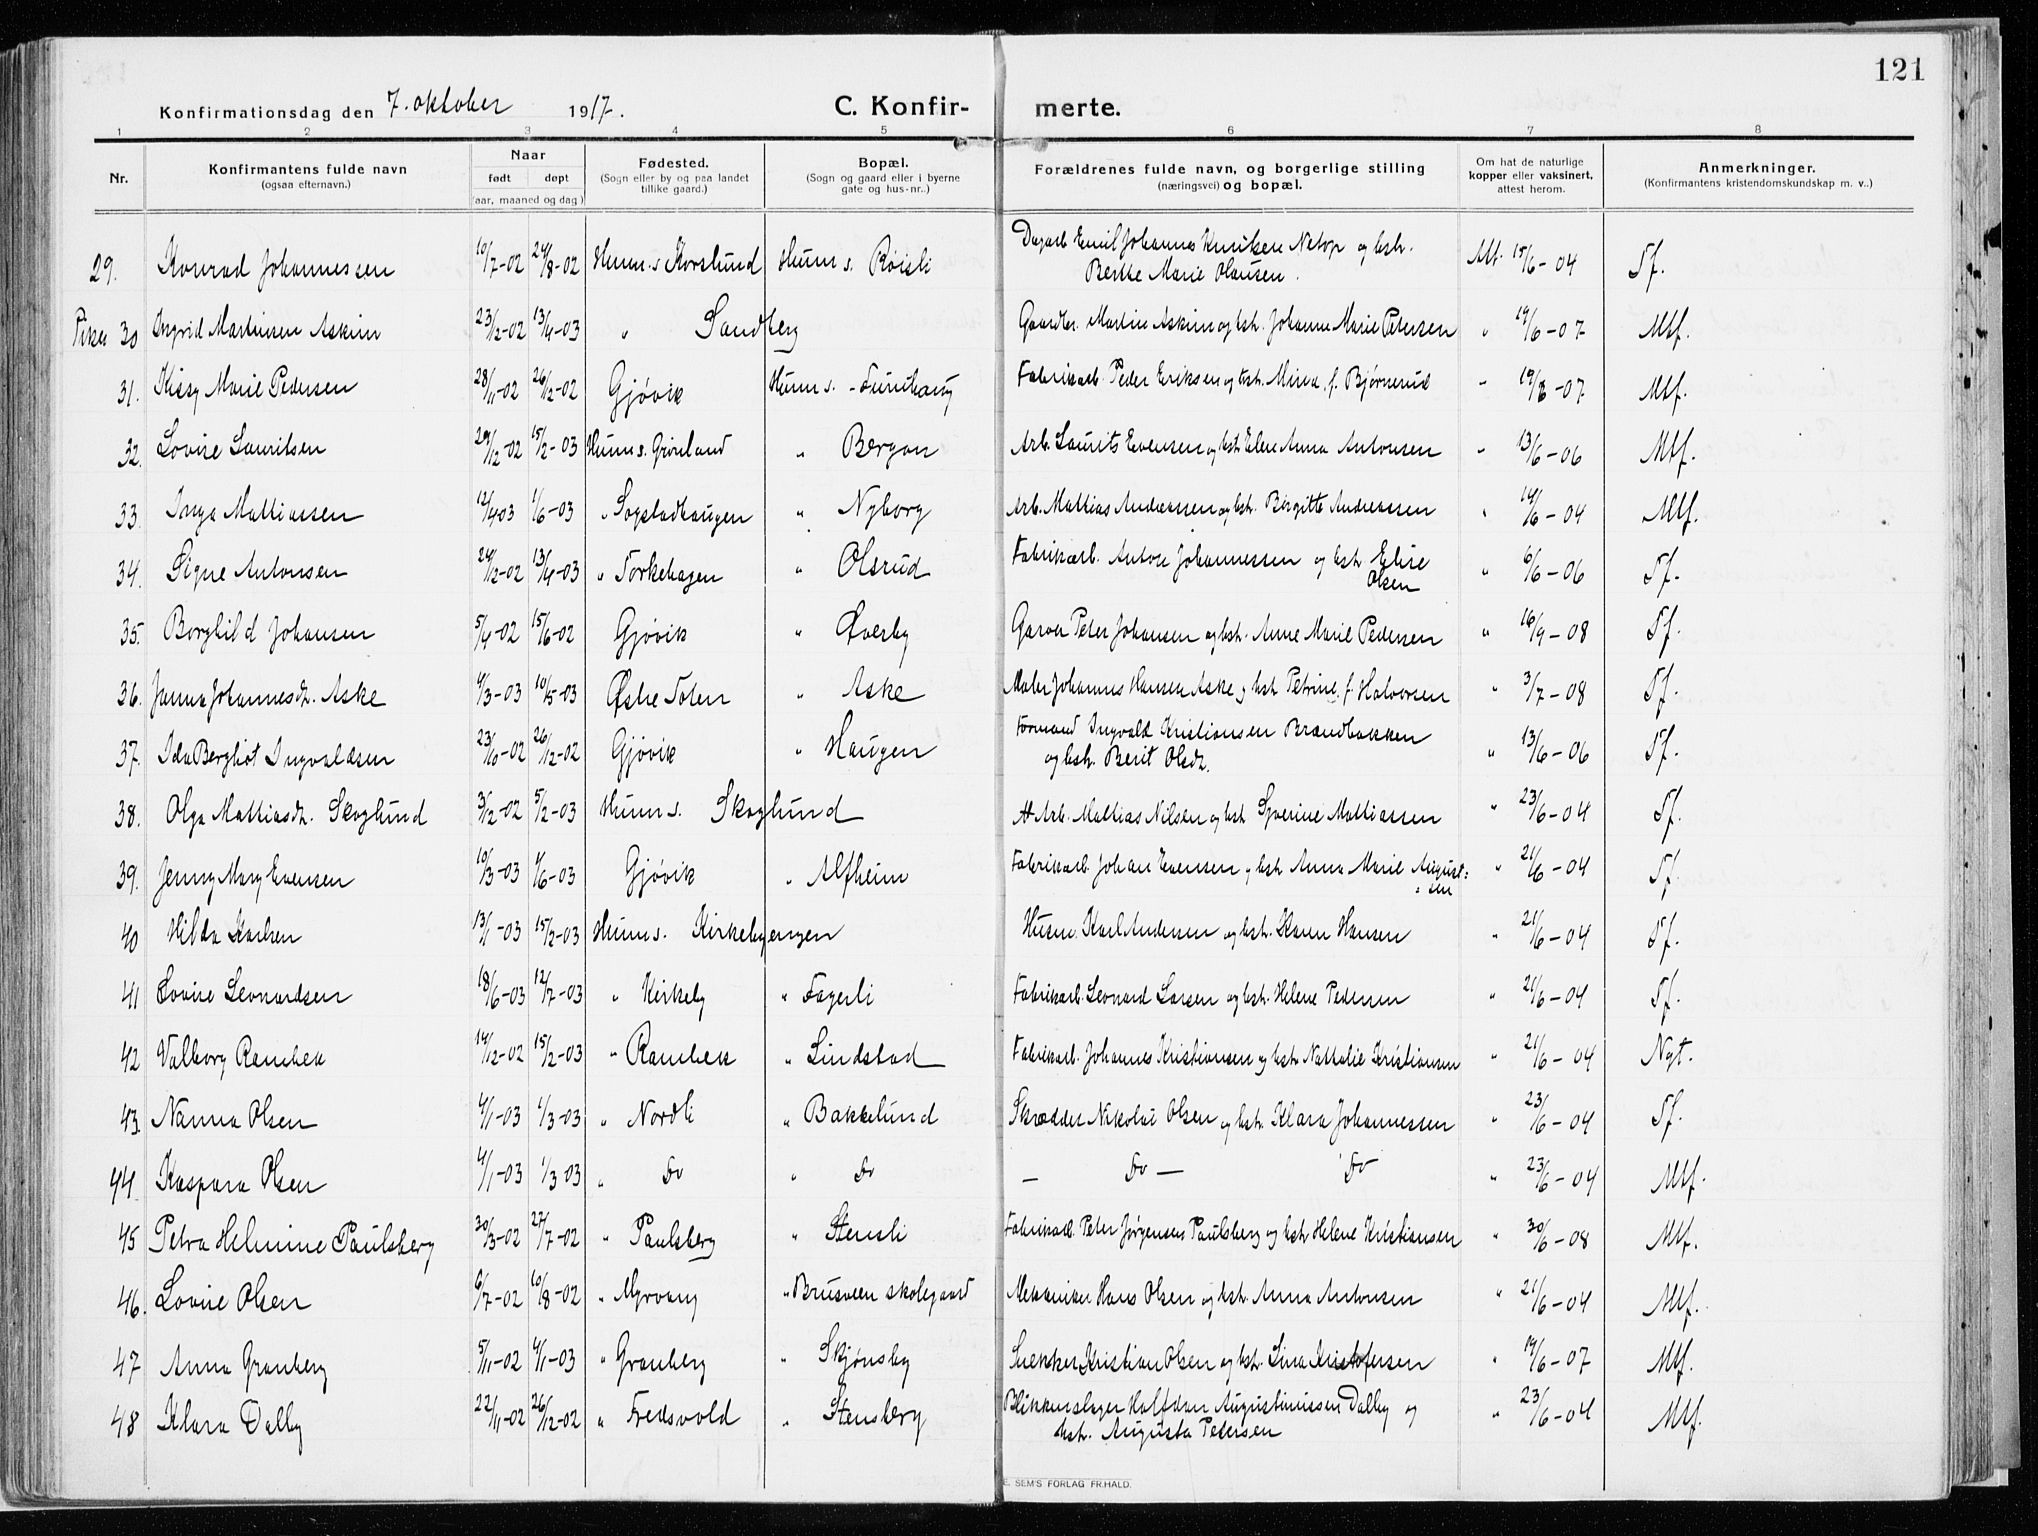 121
Konfirmationsdag den 7. oktober 1917.
C. Konfir- merte.
1 2 3 4 5 6 7 8
Nr. Konfirmantens fulde navn (ogsaa efternavn.) Naar født døpt (aar, maaned og dag) Fødested. (Sogn eller by og paa landet tillike gaard.) Bopæl. (Sogn og gaard eller i byerne gate og hus-nr..) Forældrenes fulde navn, og borgerlige stilling (næringsvei) og bopæl. Om hat de naturlige kopper eller vaksinert, attest herom. Anmerkninger. (Konfirmantens kristendomskundskap m. v..)
29. Konrad Johannessen 10/7-02 24/8-02 Hunn s. Korslund Hunn s. Røisli Dagarb. Emil Johannes Knutsen Netop og hstr. Berthe Marie Olausen. Att. 15/6-04 Sf.
Piker 30 Ingrid Martinsen Askim 23/12-02 13/4-03 " Sandberg Gaardbr. Martin Askim og hstr. Johanne Marie Petersen " 19/6-07 Mtf.
31. Kissy Marie Pedersen 28/11-02 26/12-02 Gjøvik Hunn s. - Furuhaug Fabrikarb. Peder Eriksen og hstr. Mina f. Bjørnerud " 19/6-07 Mtf.
32. Lovise Lauritsen 29/12-02 15/2-03 Hunn s. Grønland " Bergan Arb. Laurits Evensen og hstr. Elen Anna Antonsen " 13/6-06 Mtf.
33. Inga Mattiassen 12/4-03 1/6-03 " Sogstadhaugen " Nyborg Arb. Mattias Andreassen og hstr. Birgitte Andreassen " 14/6-04 Mtf.
34. Signe Antonsen 24/12-02 13/4-03 " Torkehagen " Olsrud Fabrikarb. Anton Johannessen og hstr. Elise Olsen " 6/6-06 Sf.
35. Borghild Johansen 5/4-02 15/6-02 Gjøvik " Øverby Garver Peter Johansen og hstr. Anne Marie Pedersen " 16/9-08 Sf.
36. Janna Johannesdr. Aske 4/3-03 10/5-03 Østre Toten " Aske Maler Johannes Hansen Aske og hstr. Petrine f. Halvorsen " 3/7-08 Sf.
37. Ida Bergliot Ingvaldsen 23/10-02 26/12-02 Gjøvik " Haugen Formand Ingvald Kristiansen Brandbakken og hstr. Berit Olsdr. " 13/6-06 Sf.
38. Olga Mattiasdr. Skoglund 3/12-02 5/2-03 Hunn s. Skoglund Arb. Mattias Nilsen og hstr. Syverine Mattiassen " 23/6-04 Sf.
39. Jenny Mary Evensen 10/3-03 1/6-03 Gjøvik " Alfheim Fabrikarb. Johan Evensen og hstr. Anna Marie August=
=sen " 21/6-04 Sf.
40 Hilda Karlsen 13/1-03 15/2-03 Hunn s. Kirkebyengen Husm. Karl Andersen og hstr. Karen Hansen " 21/6-04 Sf.
41 Lovise Leonardsen 18/6-03 12/7-03 " Kirkeby " Fagerli Fabrikarb. Leonard Larsen og hstr. Helene Pedersen " 21/6-04 Sf.
42 Valborg Rambek 14/12-02 15/2-03 " Rambek " Lindstad Fabrikarb. Johannes Kristiansen og hstr. Nathalie Kristiansen " 21/6-04 Ngt.
43. Nanna Olsen 4/1-03 1/3-03 " Nordli " Bakkelund Skrædder Nikolai Olsen og hstr. Klara Johannessen " 23/6-04 Sf.
44. Kaspara Olsen 4/1-03 1/3 03 " Do " Do — Do — Do " 23/6-04 Mtf.
45 Petra Helmine Paulsberg 30/3-02 27/7-02 " Paulsberg " Stensli Fabrikarb. Peter Jørgensen Paulsberg og hstr. Helene Kristiansen " 30/6-08 Mtf.
46. Lovise Olsen 6/7-02 10/8-02 " Myrvang " Brusveen skolegaard Mekaniker Hans Olsen og hstr. Anna Antonsen " 21/6-04 Mtf.
47 Anna Granberg 5/11-02 4/1-03 " Granberg " Skjønsby Snekker Kristian Olsen og hstr. Lina Kristofersen " 19/6-07 Mtf.
48 Klara Dalby 22/11-02 26/12-02 " Fredsvold " Stensberg Blikkenslager Halfdan Augustinussen Dalby og hstr. Augusta Pedersen " 23/6-04 Mtf.
E. SEM'S FORLAG FR.HALD.